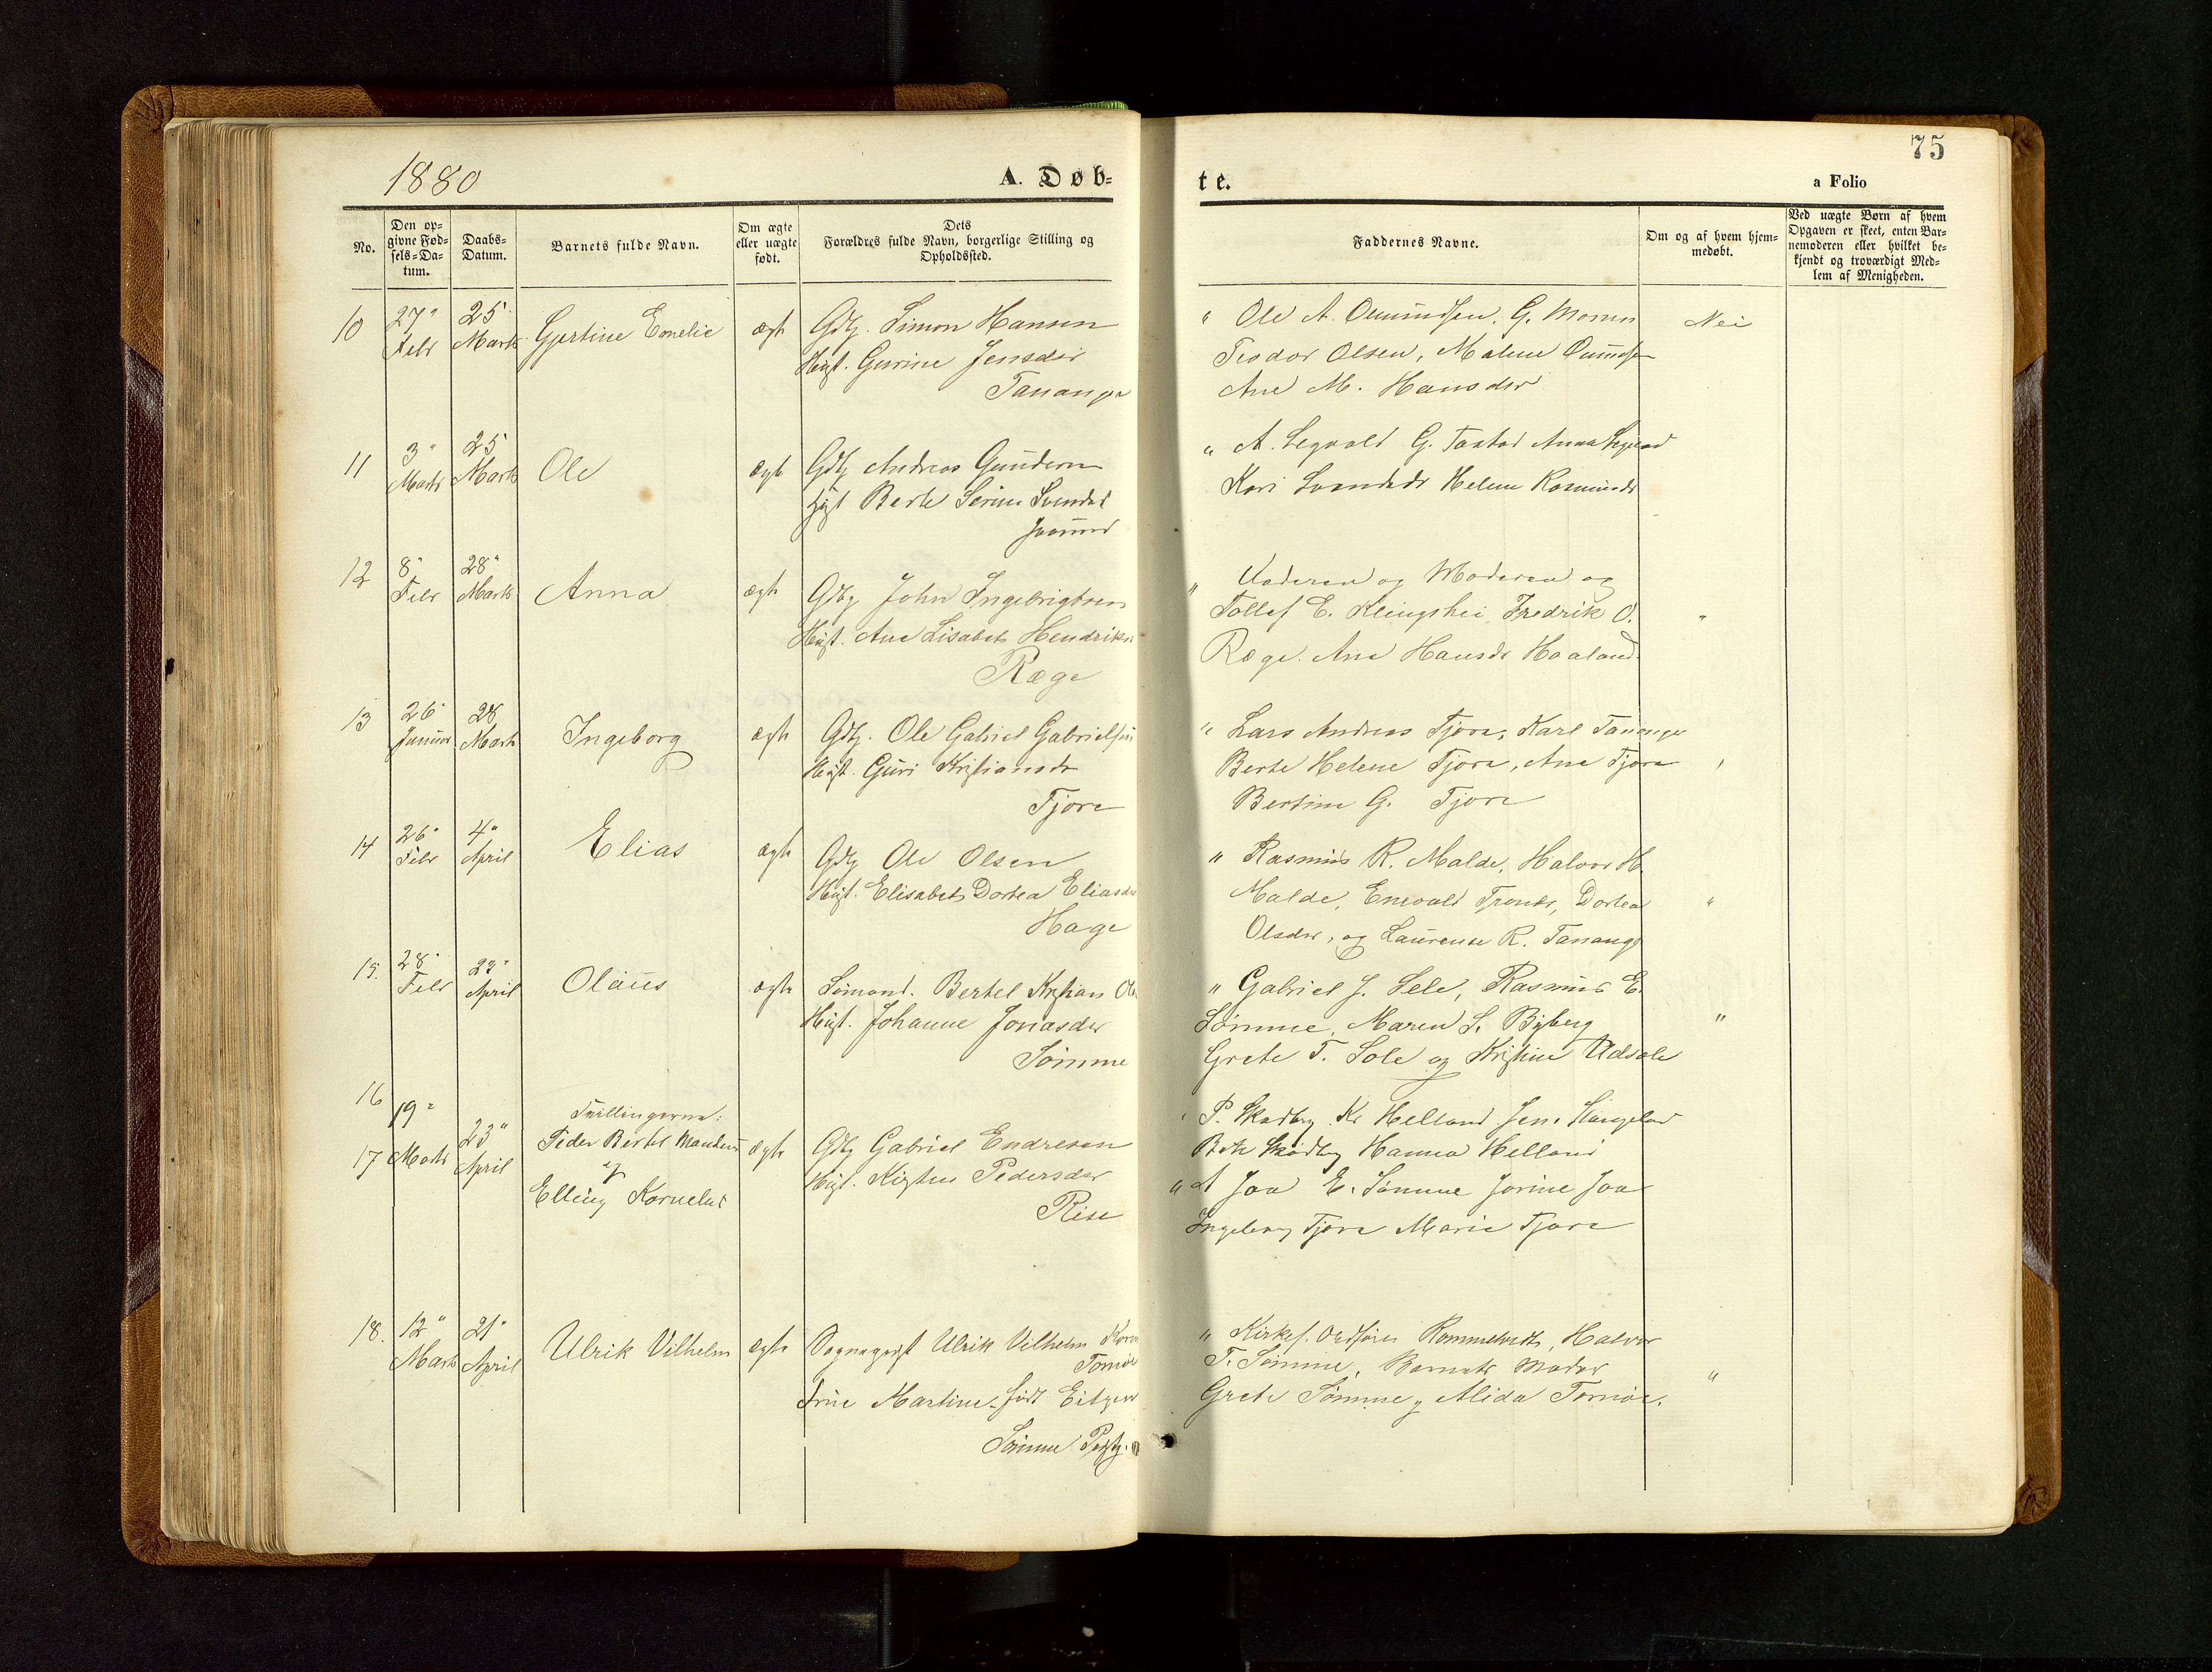 1880
A. Døb-
te.
75
a Folio
No.
Den op-
givne Fød-
sels-Da-
tum.
Daabs-
Datum.
Barnets fulde Navn.
Om ægte
eller uægte
født.
Dets
Forældres fulde Navn, borgerlige Stilling og
Opholdssted.
Faddernes Navne.
Om og af hvem hjem-
medøbt.
Ved uægte Børn af hvem
Opgaven er skeet, enten Bar-
nemoderen eller hvilket be-
kjendt og troværdigt Med-
lem af Menigheden.
10
27"
Febr
25
Marts
Gjertine Emelie
ægte
Gdbr. Simon Hansen
Hust. Gurine Jensdtr
Tananger
" Ole A. G. Monsen
Teodor Olsen, Malene
Ane M. Hansdtr
Nei
11
3"
Marts
25
Marts
Ole
ægte
Gdbr Andreas
Hust Berte Serine
" A. Segvold G. Tastad Anna
Kari Helene
12
8"
Febr
28"
Marts
Anna
ægte
Gdbr John Ingebrigtsen
Hust. Ane Lisabet Hendriks
Ræge
" Faderen og Moderen og
Tollef E. Klingshei, Fredrik O.
Ræge. Ane Hansdr Haaland.
"
13
26"
Januar
28
Marts
Ingeborg
ægte
Gdbr. Ole Gabriel Gabrielsen
Hust. Guri Kristiansdr
Tjora
" Lars Andreas Tjora, Karl Tananger
Berte Helene Tjora, Ane Tjora
Bertine G. Tjora
14
26"
Febr
4"
April
Elias
ægte
Gdbr Ole Olsen
Hust. Elisabet Dortea Eliasdr
Hage
" Rasmus R. Malde, Halvor H.
Malde, Enevald Dortea
Olsdr, og Laurense R. Tananger
"
15.
28"
Febr
23"
April
Olaus
ægte
Sømand. Bertel Kristian
Hust. Johanne Jonasdr
Sømme
" Gabriel J. Sele, Rasmus E.
Sømme, Maren S. Byberg
Grete T. Sole og Kristine
"
16
19"
Tvillingerne:
17
Marts
23"
April
Peder Bertel
og
Elling Kornelius
ægte
Gdbr Gabriel Endresen
Hust. Kirsten Pedersdr
Risa
P. Skadberg Kr Helland Jens
Skadberg Hanna Helland
" A Joa E. Sømme Jorine Joa
Ingeborg Tjora Marie Tjora
18.
12"
Marts
21"
April
Ulrik Vilhelm
ægte
Sognepræst Ulrik Vilhelm
Tornøe
Frue Martine født
Sømme
" Kirkes. Halvor
T. Sømme, Barnets Moder
Grete Sømme og Alida Tornøe.
"